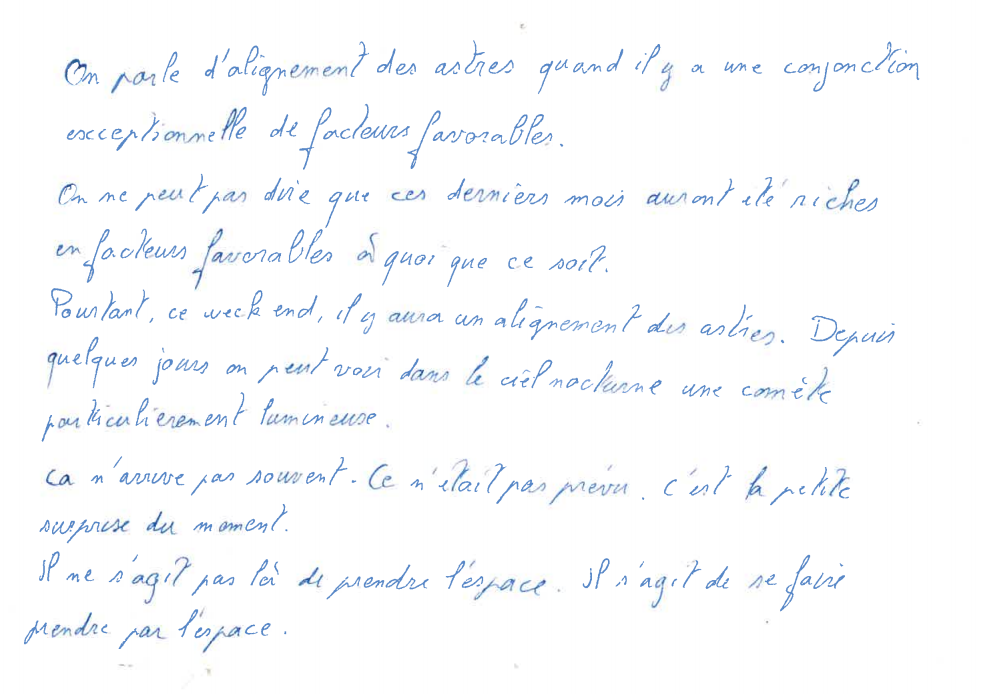 On parle d'alignement des astres quand il y a une conjonction
exceptionnelle de facteurs favorables.
On ne peut pas dire que ces derniers mois auront été riches
en facteurs favorables à quoi que ce soit.
Pourtant, ce week end, il y aura un alignement des astres. Depuis
quelques jours on peut voir dans le ciel nocturne une comète
particulièrement lumineuse.
ça n'arrive pas souvent. Ce n'était pas prévu. C'est la petite
surprise du moment.
Il ne s'agit pas là de prendre l'espace. Il s'agit de se faire
prendre par l'espace.